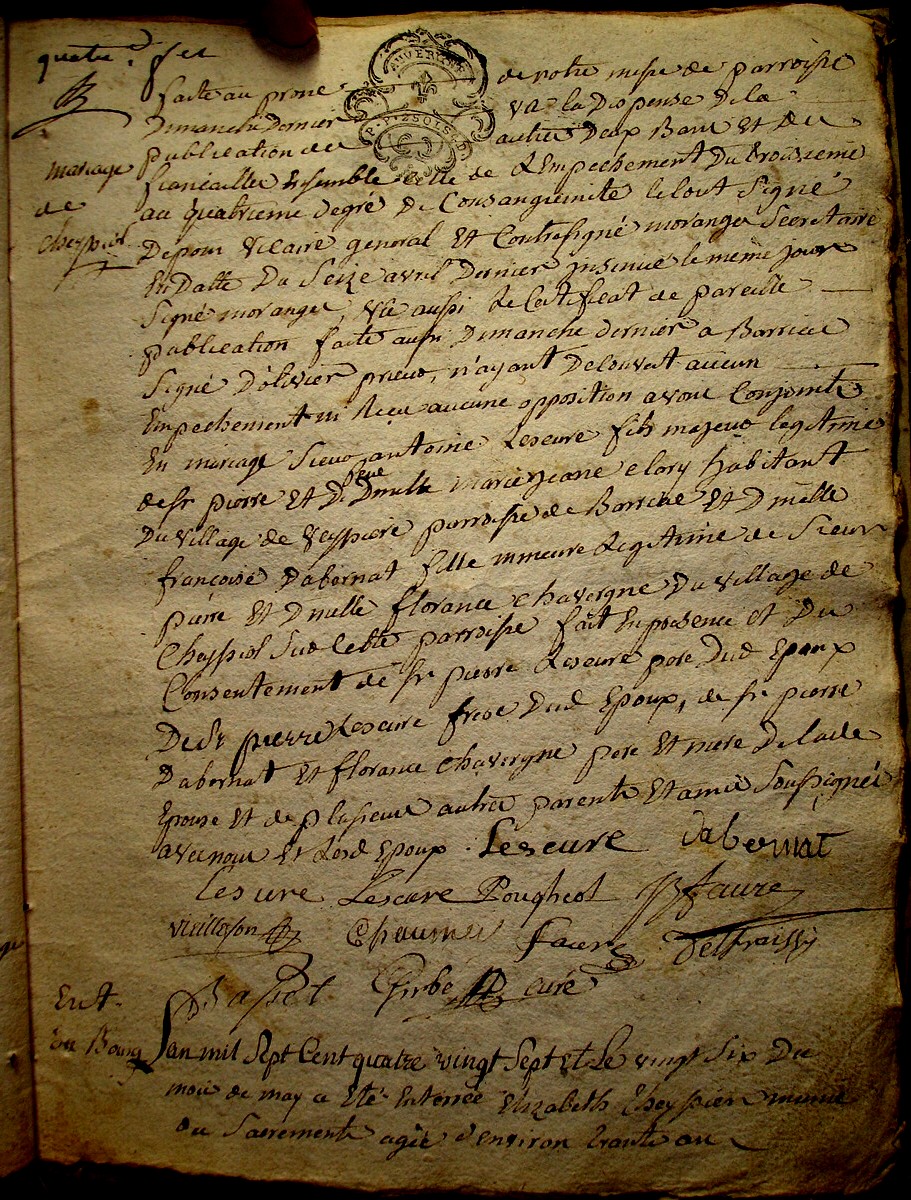 AUVERGNE
faite au prone de notre messe de parroisse
Dimanche Dernier va la Dispense De la
publication des autres Deux Bans Et Des
fiancailles Ensemble celle de L'Empechement Du troisieme
au quatrieme degré De Consanguinité le tout Signé
vicaire general Et Contresigné moranges Secretaire
En Datte Du Seize avril Dernier Insinué le même jour
Signé moranges, Vu aussi Le Certificat de pareille
publication faite aussi Dimanche dernier a Barriac
Signé D'olivier prieur, n'ayant Decouvert aucun
Empechement ni Reçu aucune opposition avons Conjoint
En mariage Sieur antoine Leseure fils majeur legitime
de sr pierre Et Dmlle marie jeane elory habitant
feue
Du village de Veyssiere parroisse de Barriac Et Dmlle
françoise Dabernat fille mineure Legitime de Sieur
pierre Et Dmlle florance Chavergne Du village de
Cheyssiol Sus cette parroisse fait En presence et Du
Consentement de sr pierre Leseure pere Dud Epoux
De sr pierre Leseure frere Dud Epoux, de sr pierre
Dabernat Et florance Chavergne pere Et mere De lade
Epouse Et de plusieurs autres parents Et amis Soussignés
avec nous Et Led Epoux. Leseure Dabernat
Lesure Lescure Pougheol Faure
Faure
curé
mariage
de
Cheyssiol
Ent.
Du Bourg
L'an mil Sept Cent quatre vingt Sept Et Le vingt Six Du
mois de may a Eté Enterrée Elizabeth Cheyssiere munie
des Sacrements agée d'environ trante ans